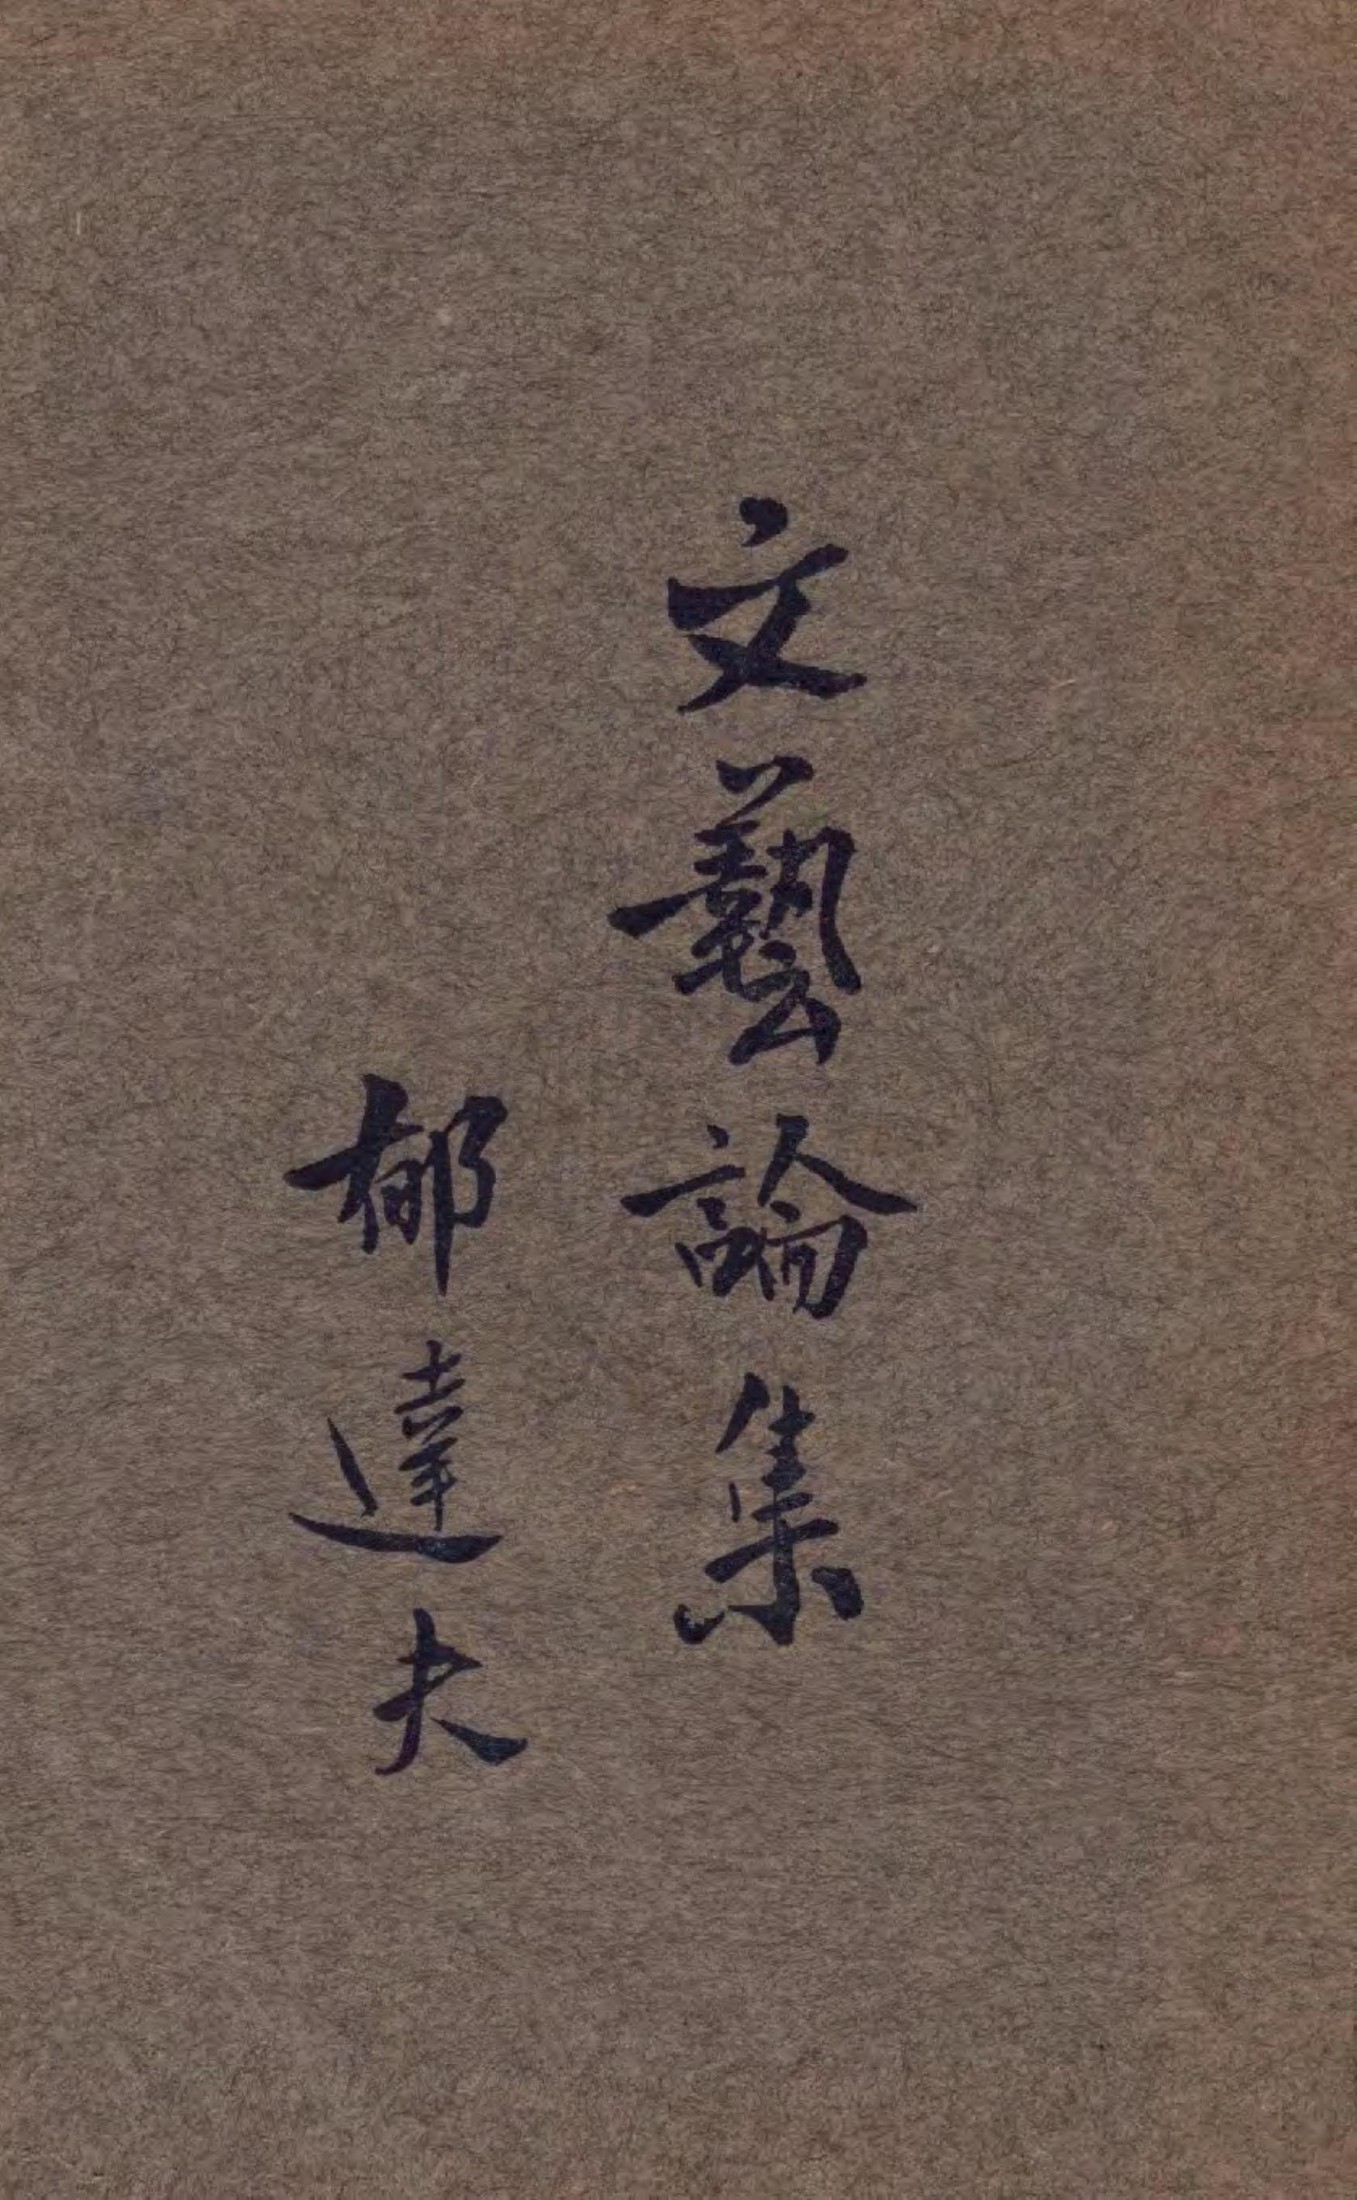 文藝論集
郁達夫